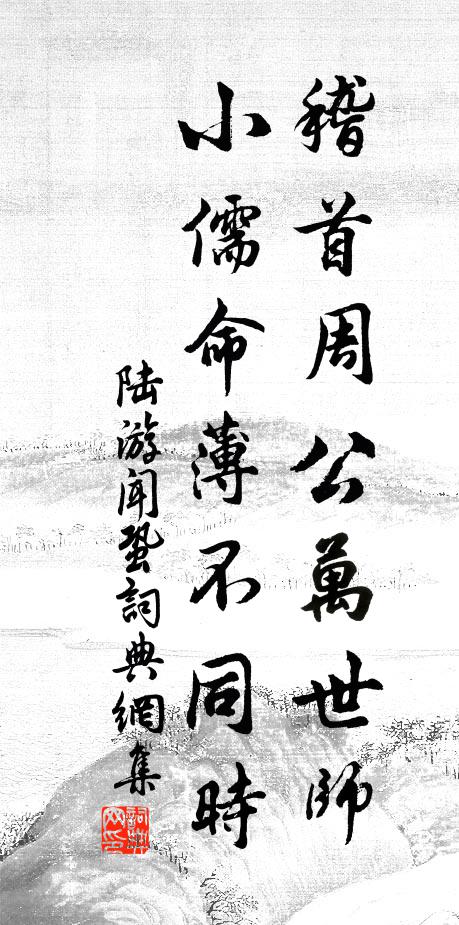 稽首周公萬世師
小儒命薄不同時
陸游聞蛩詞典網集